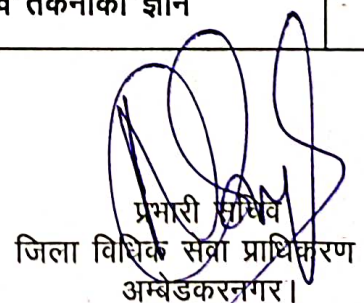 व तकनीकी ज्ञान
प्रभारी सचिव
जिला विधिक सेवा प्राधिकरण
अम्बेडकरनगर।